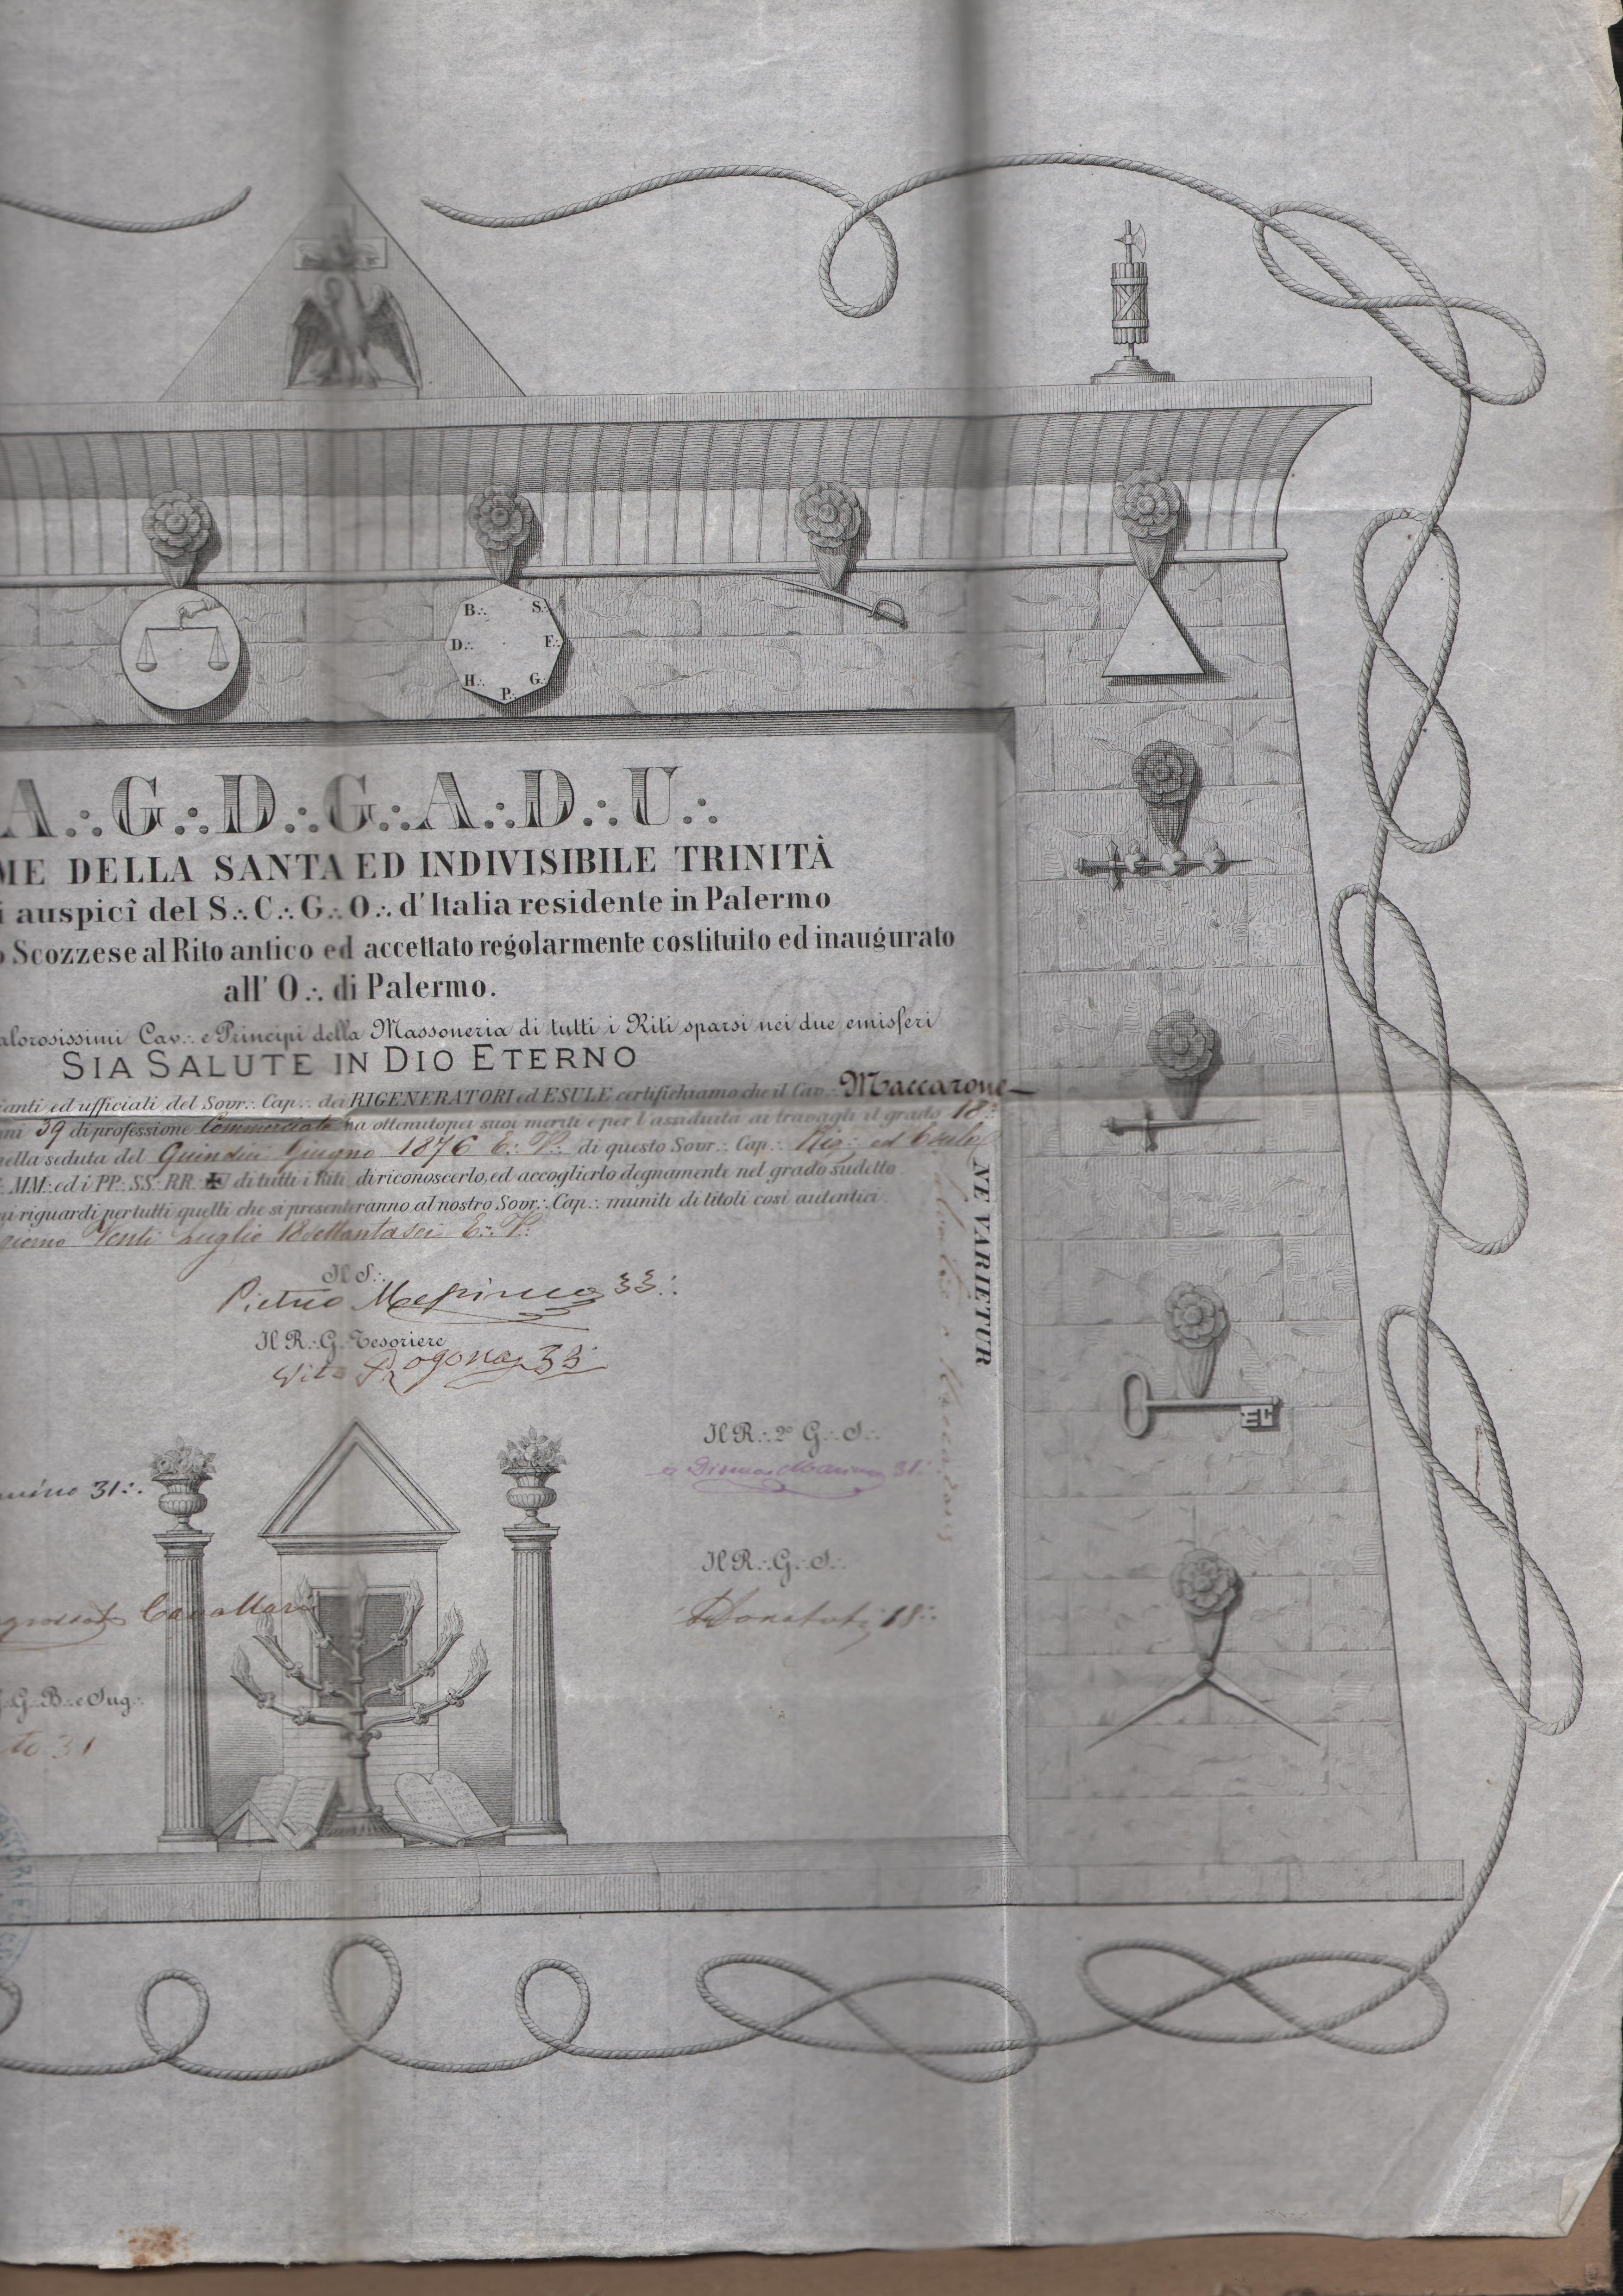 B∴ S∴
D∴ F∴
H∴ G∴
P∴
A∴G∴D∴G∴A∴D∴U∴
ME DELLA SANTA ED INDIVISIBILE TRINITÀ
i auspicî del S∴C∴G∴O∴ d'Italia residente in Palermo
o Scozzese al Rito antico ed accettato regolarmente costituito ed inaugurato
all' O∴ di Palermo.
alorosissimi Cav∴ e Principi della Massoneria di tutti i Riti sparsi nei due emisferi
SIA SALUTE IN DIO ETERNO
ianti ed ufficiali del Sovr∴ Cap∴ dei RIGENERATORI ed ESULE certifichiamo che il Cav∴ Maccarone
nni 39 di professione Commerciante ha ottenuto pei suoi meriti e per l'assiduità ai travagli il grado 18∴
nella seduta del Quindici Giugno 1876 E∴ V∴ di questo Sovr∴ Cap∴ Rig∴ ed Esule
MM∴ ed i PP∴ SS∴ RR∴ ✠ di tutti i Riti di riconoscerlo, ed accoglierlo degnamente nel grado sudetto
ni riguardi per tutti quelli che si presenteranno al nostro Sovr∴ Cap∴ muniti di titoli così autentici
giorno Venti Luglio 18settantasei E∴ V∴
NE VARIETUR
Il S∴
Pietro 33∴
Il R∴ G∴ Tesoriere
Vito Rogona 33∴
EC
Il R∴ 2º G∴ S∴
Marino 31∴
31∴
Il R∴ G∴ S∴
Donatuti 18∴
Cavallari
G∴ B∴ e Sug∴
to 31